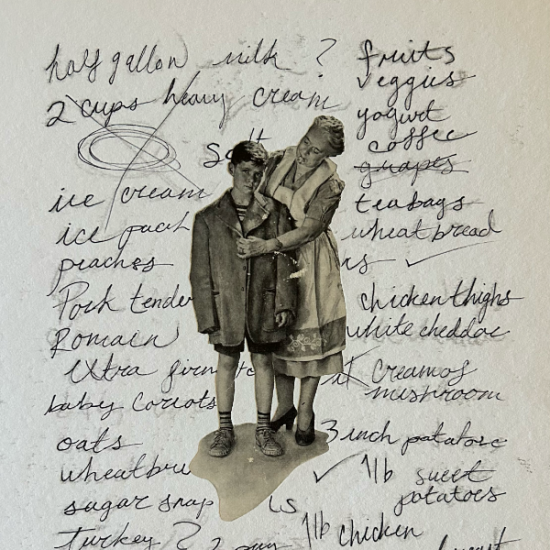 half gallon milk ?
2 cups heavy cream
Salt
ice cream
ice pack
peaches
Pork tender
Romain
extra firm
baby corrots
oats
wheatbre
sugar snap
turkey ? 2
fruits
veggies
yogurt
coffee
grapes
teabags
wheat bread
chicken thighs
white cheddar
creamof
mushroom
3 inch potatoe
1lb sweet
potatoes
1lb chicken